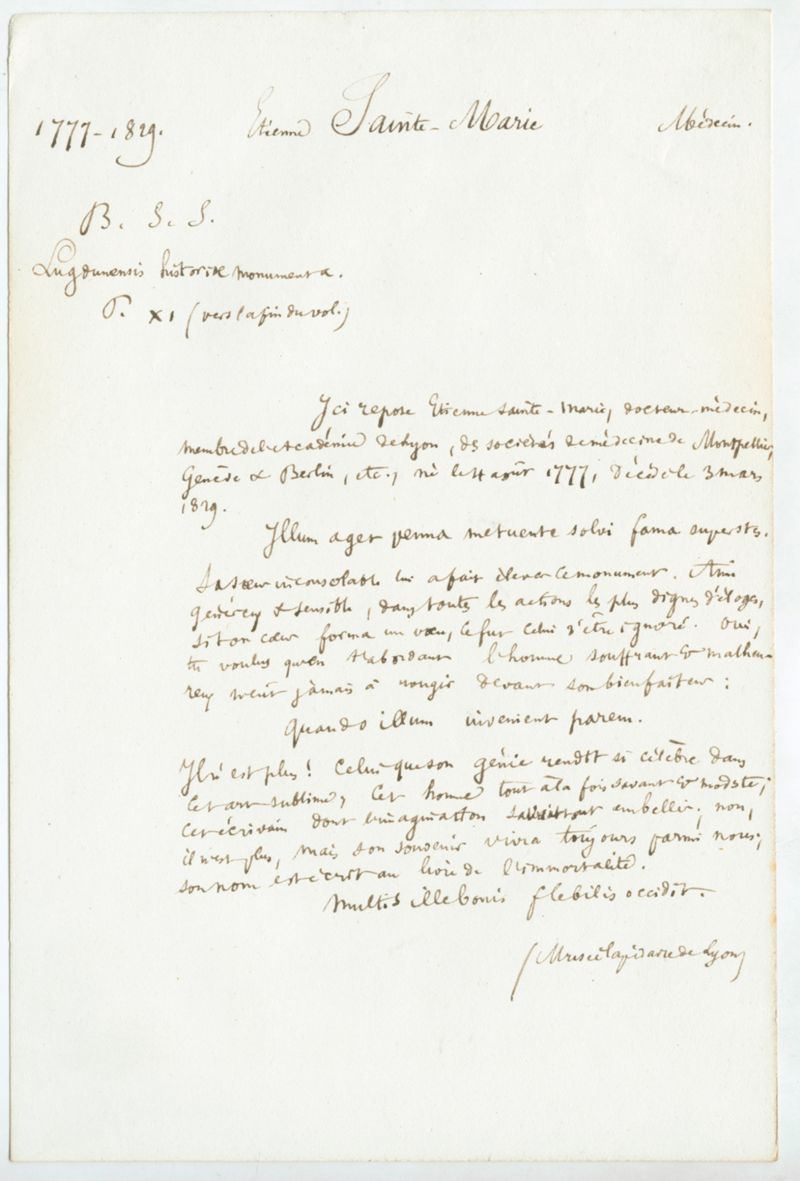 1777-1829. Etienne Sainte-Marie Médecin.
B. S. S.
Lugdunensis historiæ monumenta.
T. XI (vers la fin du vol.)
Ici repose Etienne Sainte-Marie, docteur-médecin,
membre de l'académie de Lyon, des sociétés de médecine de Montpellier,
Genève & Berlin, etc., né le 4 août 1777, décédé le 3 mars
1829.
Illum aget penna metuente solvi fama superstes.
Sa sœur inconsolable lui a fait élever ce monument. Ami
généreux & sensible, dans toutes les actions les plus dignes d'éloges,
si ton cœur forma un vœu, ce fut celui d'être ignoré. Oui,
tu voulus qu'en t'abordant l'homme souffrant & malheu-
reux n'eût jamais à rougir devant son bienfaiteur :
Quando illum invenient parem.
Il n'est plus ! Celui que son génie rendit si célèbre dans
cet art sublime, cet homme tout à la fois savant & modeste;
cet écrivain dont l'imagination savait tout embellir; non,
il n'est plus, mais son souvenir vivra toujours parmi nous;
son nom est écrit au livre de l'immortalité.
Multis ille bonis flebilis occidit.
(Musée lapidaire de Lyon)